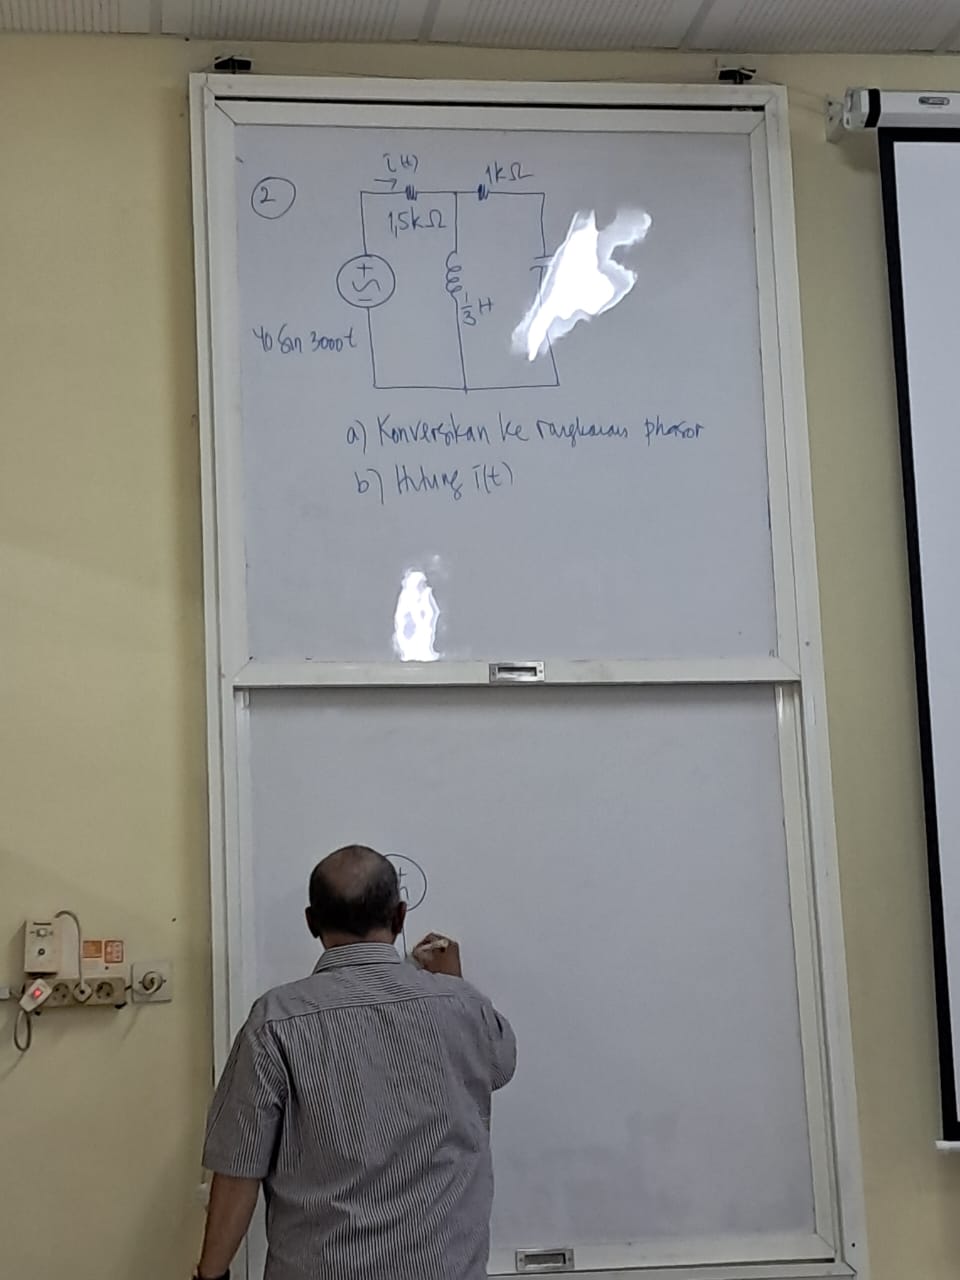 2
i(t)
1kΩ
1,5kΩ
1/3 H
40 Sin 3000t
a) Konversikan ke rangkaian phasor
b) Hitung i(t)